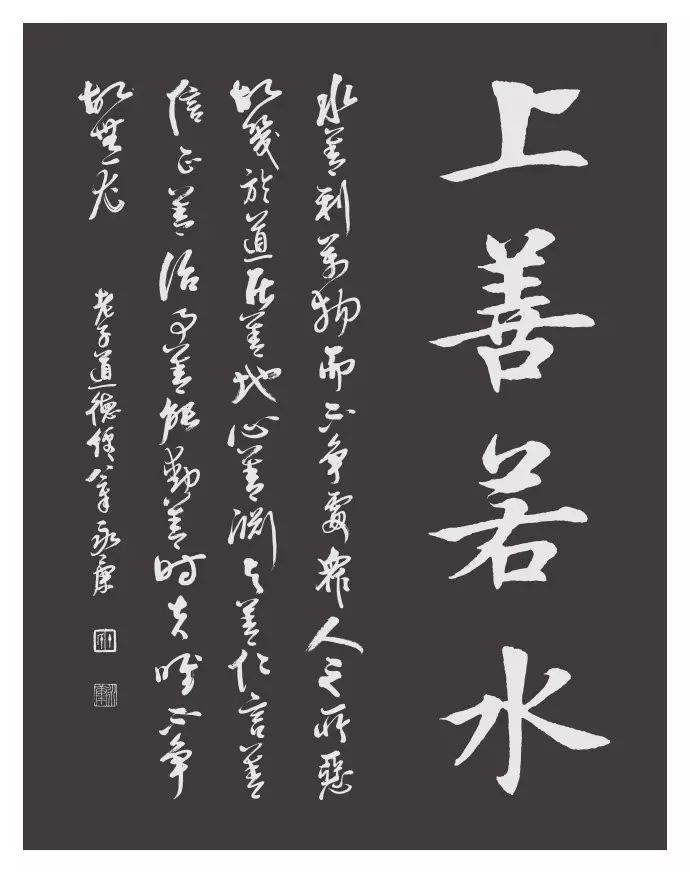 上善若水
水善利萬物而不争處眾人之所惡
故幾於道居善地心善淵与善仁言善
信正善治事善能動善時夫唯不争
故無尤
老子道德經八章永康